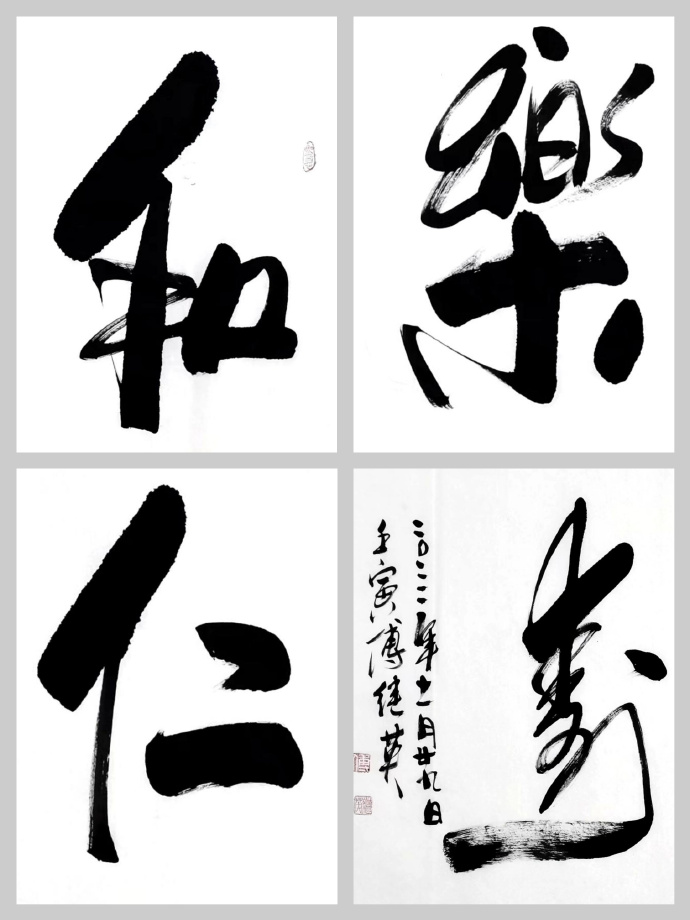 和
樂
仁
壽
二〇二二年十一月廿九日
壬寅傅继英